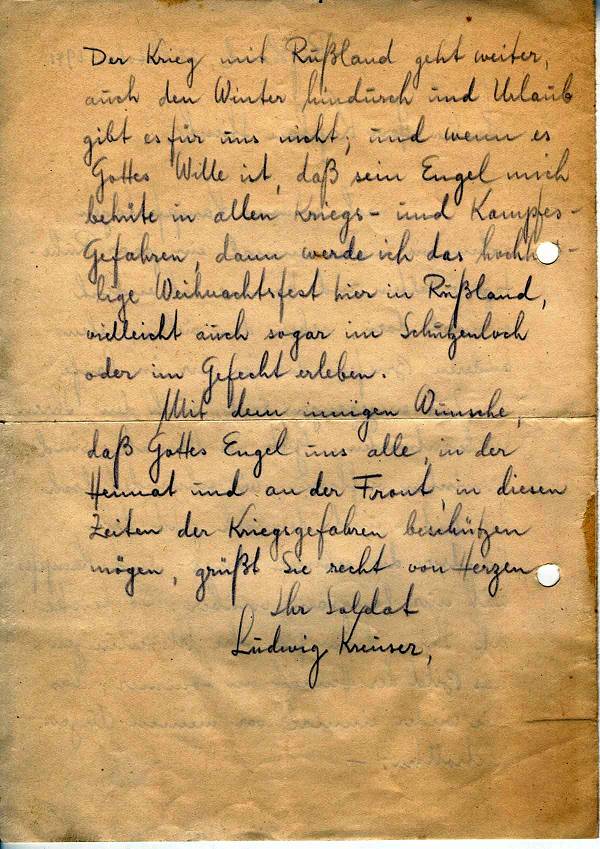 Der Krieg mit Rußland geht weiter,
auch den Winter hindurch und Urlaub
gibt es für uns nicht; und wenn es
Gottes Wille ist, daß sein Engel mich
behüte in allen Kriegs- und Kampfes-
Gefahren, dann werde ich das hochhei-
lige Weihnachtsfest hier in Rußland,
vielleicht auch sogar im Schützenloch
oder im Gefecht erleben.
Mit dem innigen Wunsche,
daß Gottes Engel uns alle, in der
Heimat und an der Front, in diesen
Zeiten der Kriegsgefahren beschützen
mögen, grüßt Sie recht von Herzen
Ihr Soldat
Ludwig Kreuser,